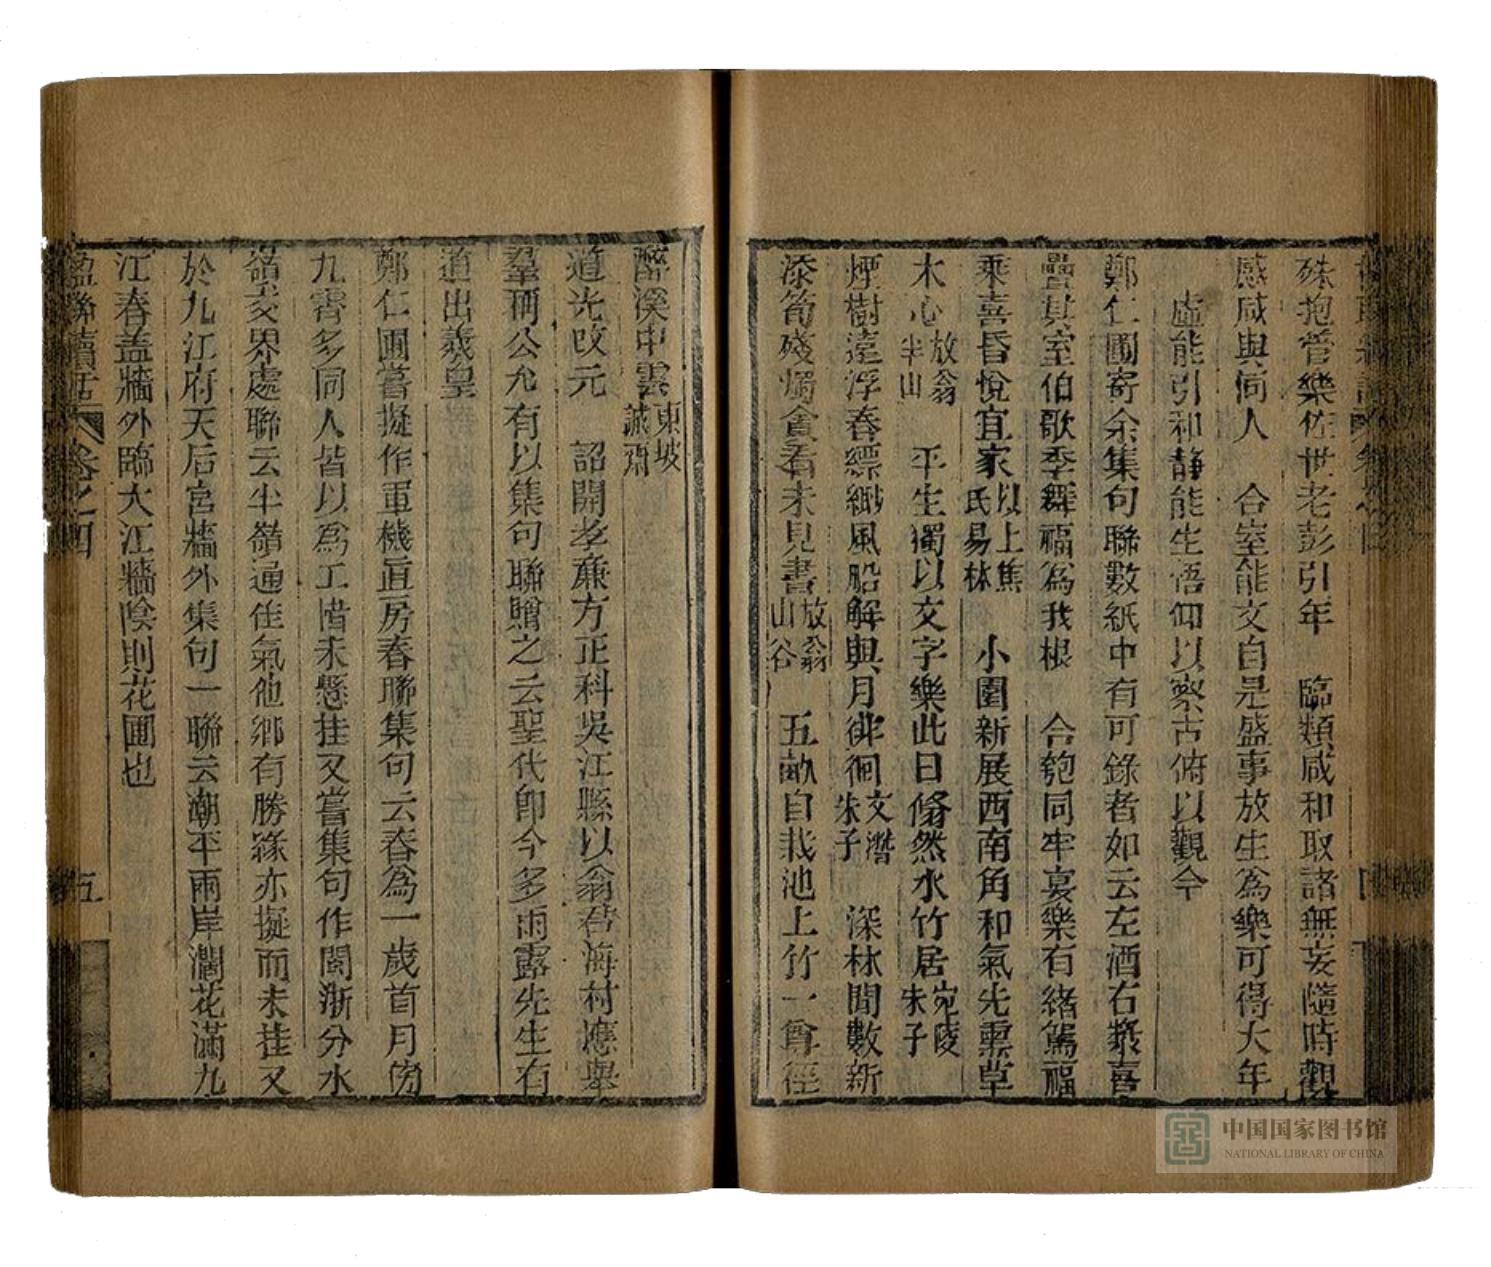 殊抱管樂佐世老彭引年　臨類咸和取諸無妄隨時觀
感咸與同人　合室能文自是盛事放生爲樂可得大年
虛能引和靜能生悟仰以察古俯以觀今
鄭仁圃寄余集句聯數紙中有可錄者如云左酒右漿喜
疊其室伯歌季舞福爲我根　合匏同牢宴樂有緒駕福
乘喜昏悅宜家以上焦氏易林　小園新展西南角和氣先熏草
木心放翁半山　平生獨以文字樂此日翛然水竹居宛陵朱子
煙樹遠浮春縹緲風船解與月徘徊文潛朱子　深林聞數新
添筍殘燭貪看未見書放翁山谷　五畝自栽池上竹一尊徑
醉溪中雲東坡誠齋
道光改元　詔開孝廉方正科吳江縣以翁君海村應舉
羣稱公允有以集句聯贈之云聖代即今多雨露先生有
道出羲皇
鄭仁圃嘗擬作軍機直房春聯集句云春爲一歲首月傍
九霄多同人皆以爲工惜未懸挂又嘗集句作閩浙分水
嶺交界處聯云半嶺通佳氣他鄉有勝緣亦擬而未挂又
於九江府天后宮牆外集句一聯云潮平兩岸濶花滿九
江春蓋牆外臨大江牆陰則花圃也
楹聯續話　卷之四　五
中国国家图书馆
NATIONAL LIBRARY OF CHINA